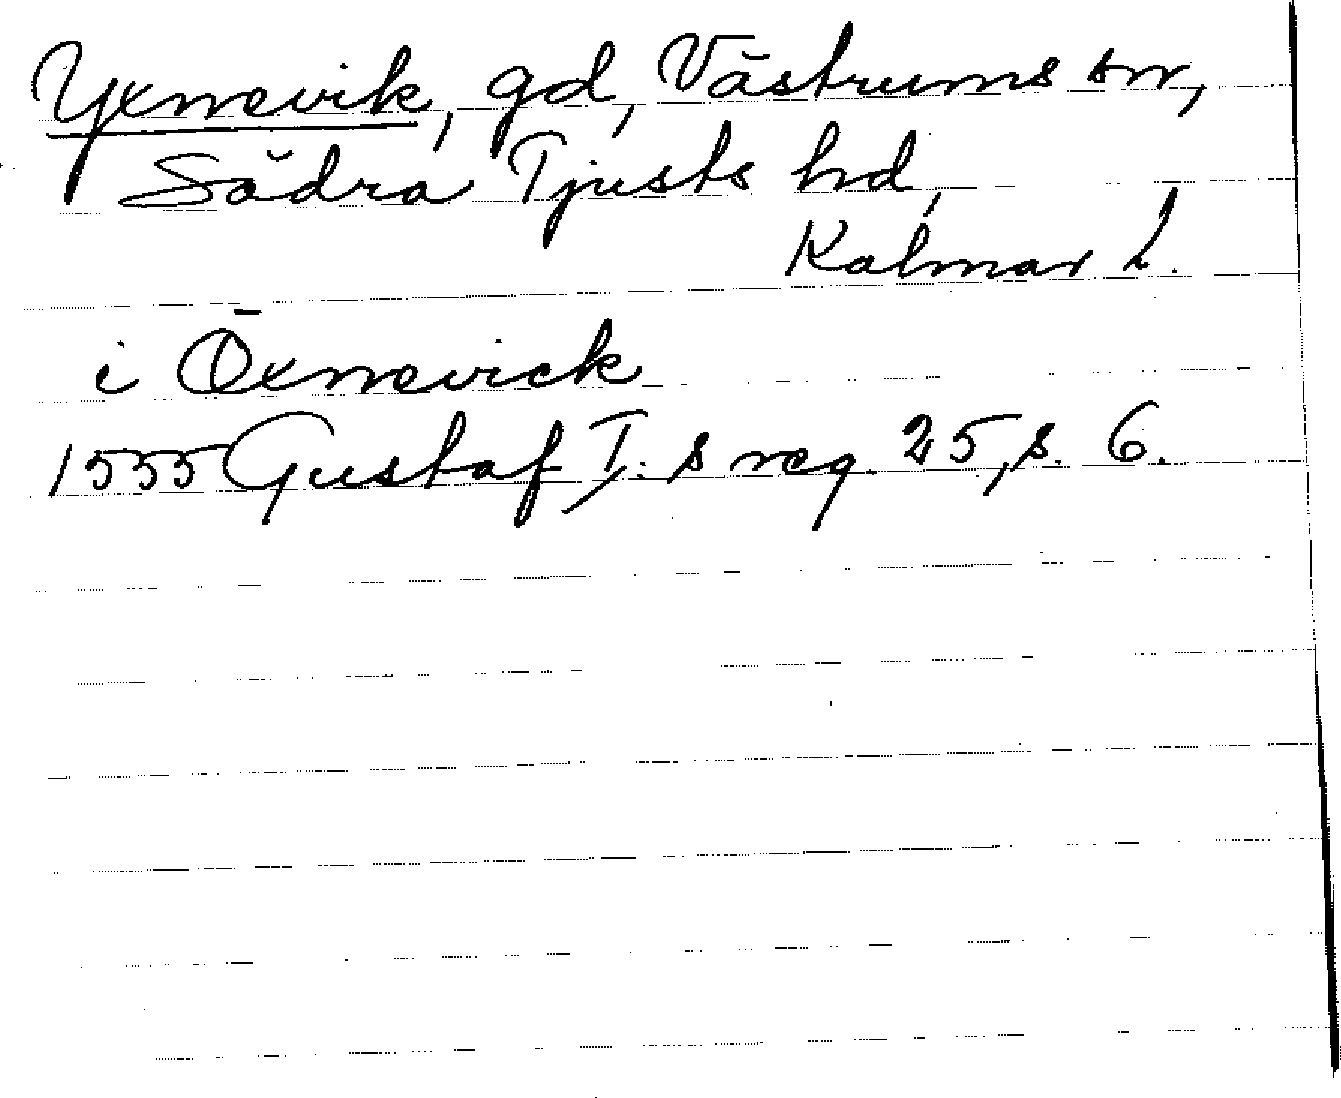 Yxnevik, gd, Västrums sn,
Södra Tjusts hd,
Kalmar l.
i Öxnevick
1555 Gustaf I:s reg. 25, s. 6.